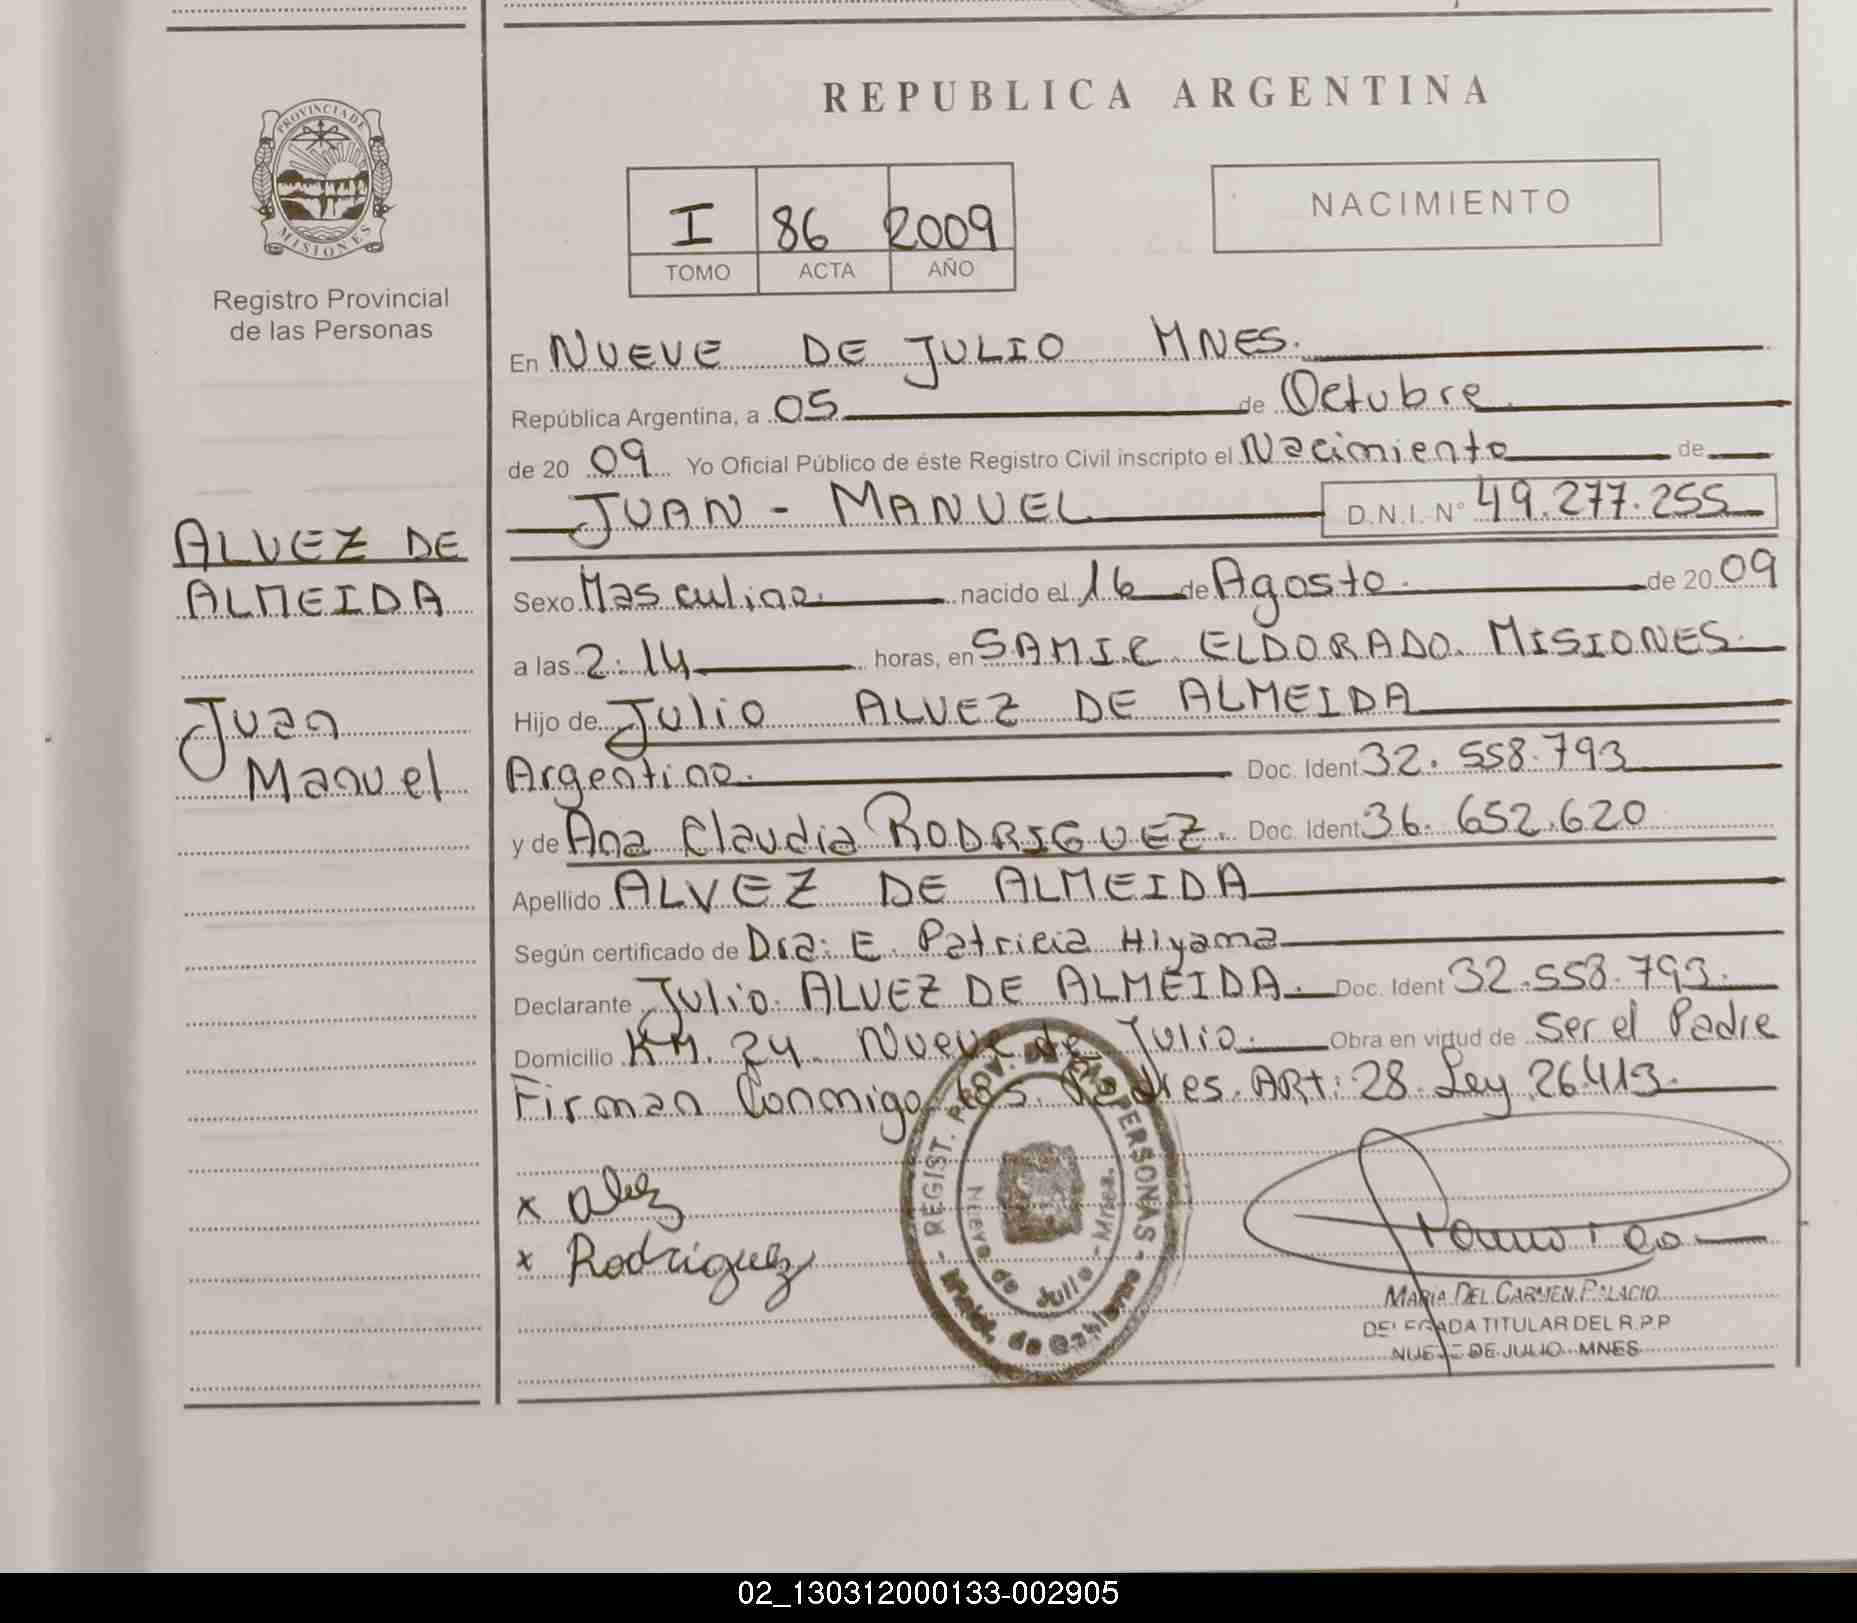 REPUBLICA ARGENTINA
PROVINCIA DE
MISIONES
Registro Provincial
de las Personas
I 86 2009
TOMO ACTA AÑO
NACIMIENTO
En NUEVE DE JULIO MNES.
República Argentina, a 05 de Octubre
de 20 09 Yo Oficial Público de éste Registro Civil inscripto el Nacimiento de
JUAN - MANUEL D.N.I. N° 49.277.255
ALVEZ DE
ALMEIDA
Juan
Manuel
Sexo Masculino. nacido el 16 de Agosto. de 20 09
a las 2:14 horas, en SAMIC ELDORADO. MISIONES.
Hijo de Julio ALVEZ DE ALMEIDA
Argentino. Doc. Ident 32.558.793
y de Ana Claudia RODRIGUEZ. Doc. Ident 36.652.620
Apellido ALVEZ DE ALMEIDA
Según certificado de Dra: E. Patricia Hiyama
Declarante Julio ALVEZ DE ALMEIDA. Doc. Ident 32.558.793.
Domicilio KM. 24. Nueve de Julio. Obra en virtud de ser el Padre
Firman Conmigo los Padres. ART: 28 Ley 26.413.
x Alvez
x Rodriguez
REGIST. PROV. DE LAS PERSONAS
Nueve de Julio - Mnes.
de Gobierno
MARIA DEL CARMEN PALACIO
DELEGADA TITULAR DEL R.P.P
NUEVE DE JULIO MNES
02_130312000133-002905